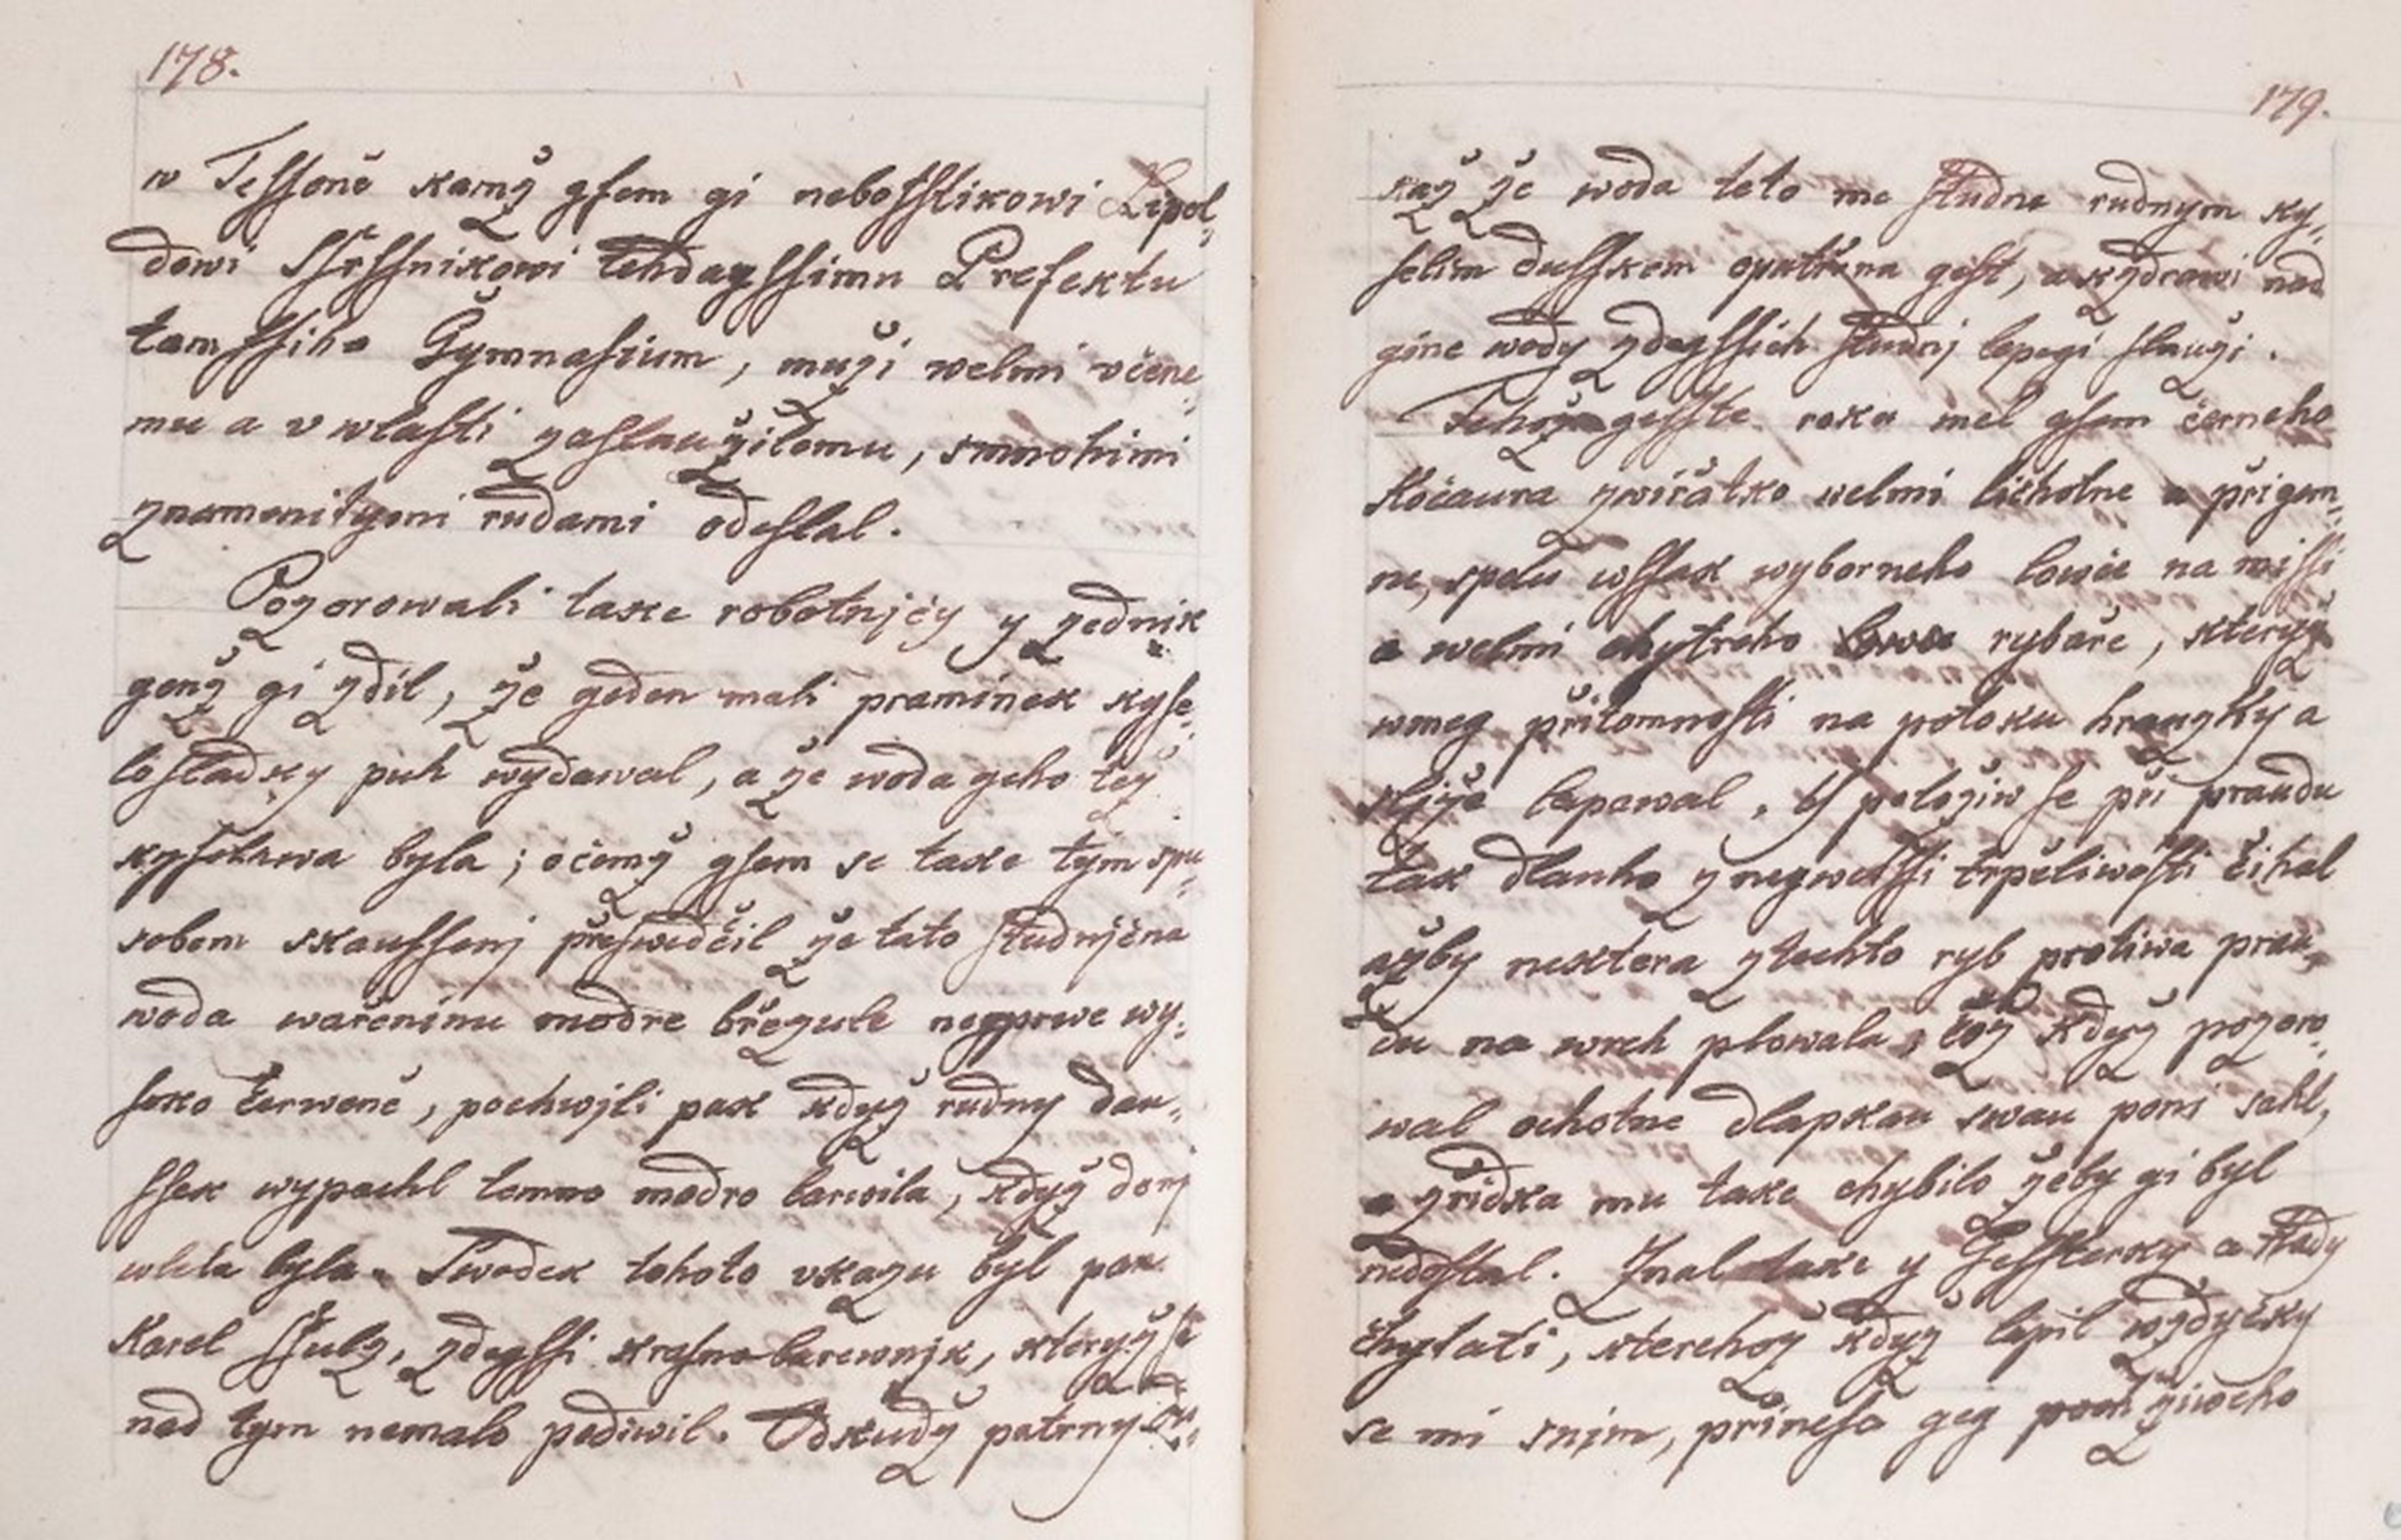 178.
w Tessoně kamž gsem gi nebosstikowi Lipol„
dowi Sserssnikowi tehdagssimu Prefektu
tamssiho Gymnasium, muži welmi včene„
mu a v wlasti zaslaužilemu, smnohimi
znamenitymi rudami odeslal.
Pozorowali take robotnjcy y zednik
genž gi zdil, že geden mali praminek kyse„
losladky puh wydawal, a že woda geho tež
kyselawa byla; očemž gsem se take tym spu„
sobem skaussenj přeswedčil že tato studnjčna
woda wařeninu modre březule negprwe wy„
soko čerwené, pochwjli pak když rudny dau„
ssek wypachl temno modro barwila, když donj
wlita byla. Swedek tohoto vkazu byl pan
Karel Ssulz, zdegssi krasnobarewnjk, kteryž se
nad tym nemalo podiwil. Odkudž patrny
179.
že woda teto me studne rudnym ky„
selim dusskem opatřena gest, a kzdrawi nad
gine wody zdegssich studnj lepegi slauži.
Tehož gesste roku mel gsem černeho
Kočaura zwiřatko welmi lichotne a přigem„
ne, spolu wssak wyborneho lowče na missi
a welmi chytreho rybaře, kteryž
wmeg přitomnosti na potoku hrauzky a
sližе lapawal. položiw se při praudu
tak dlauho znegwetssi trpěliwosti čihal
ažby nektera ztechto ryb protiwa prau„
du na wrch plowala; což když pozoro„
wal ochotne dlapkau swau poni sahl,
a zřidka mu take chybilo žeby gi byl
nedostal. Znal take y Gessterky a Hady
chytati, kterehož když lapil wždycky
se mi snim, přinesa geg žiweho